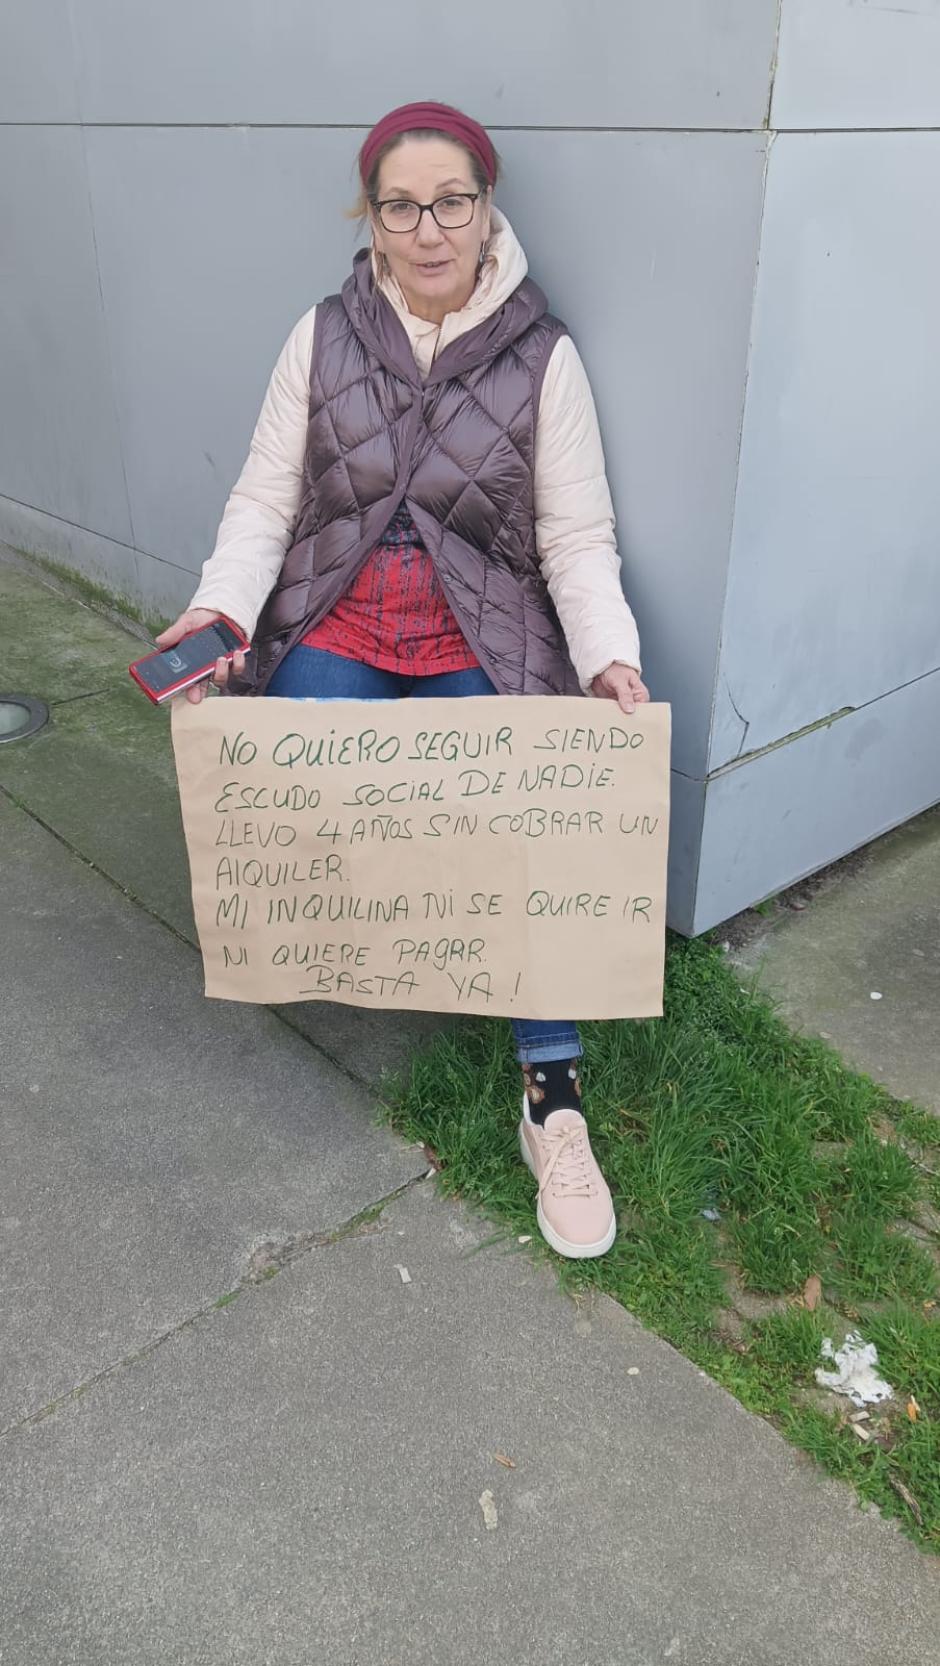 NO QUIERO SEGUIR SIENDO
ESCUDO SOCIAL DE NADIE.
LLEVO 4 AÑOS SIN COBRAR UN
AlQUILER.
MI INQUILINA NI SE QUIRE IR
NI QUIERE PAGAR.
BASTA YA!